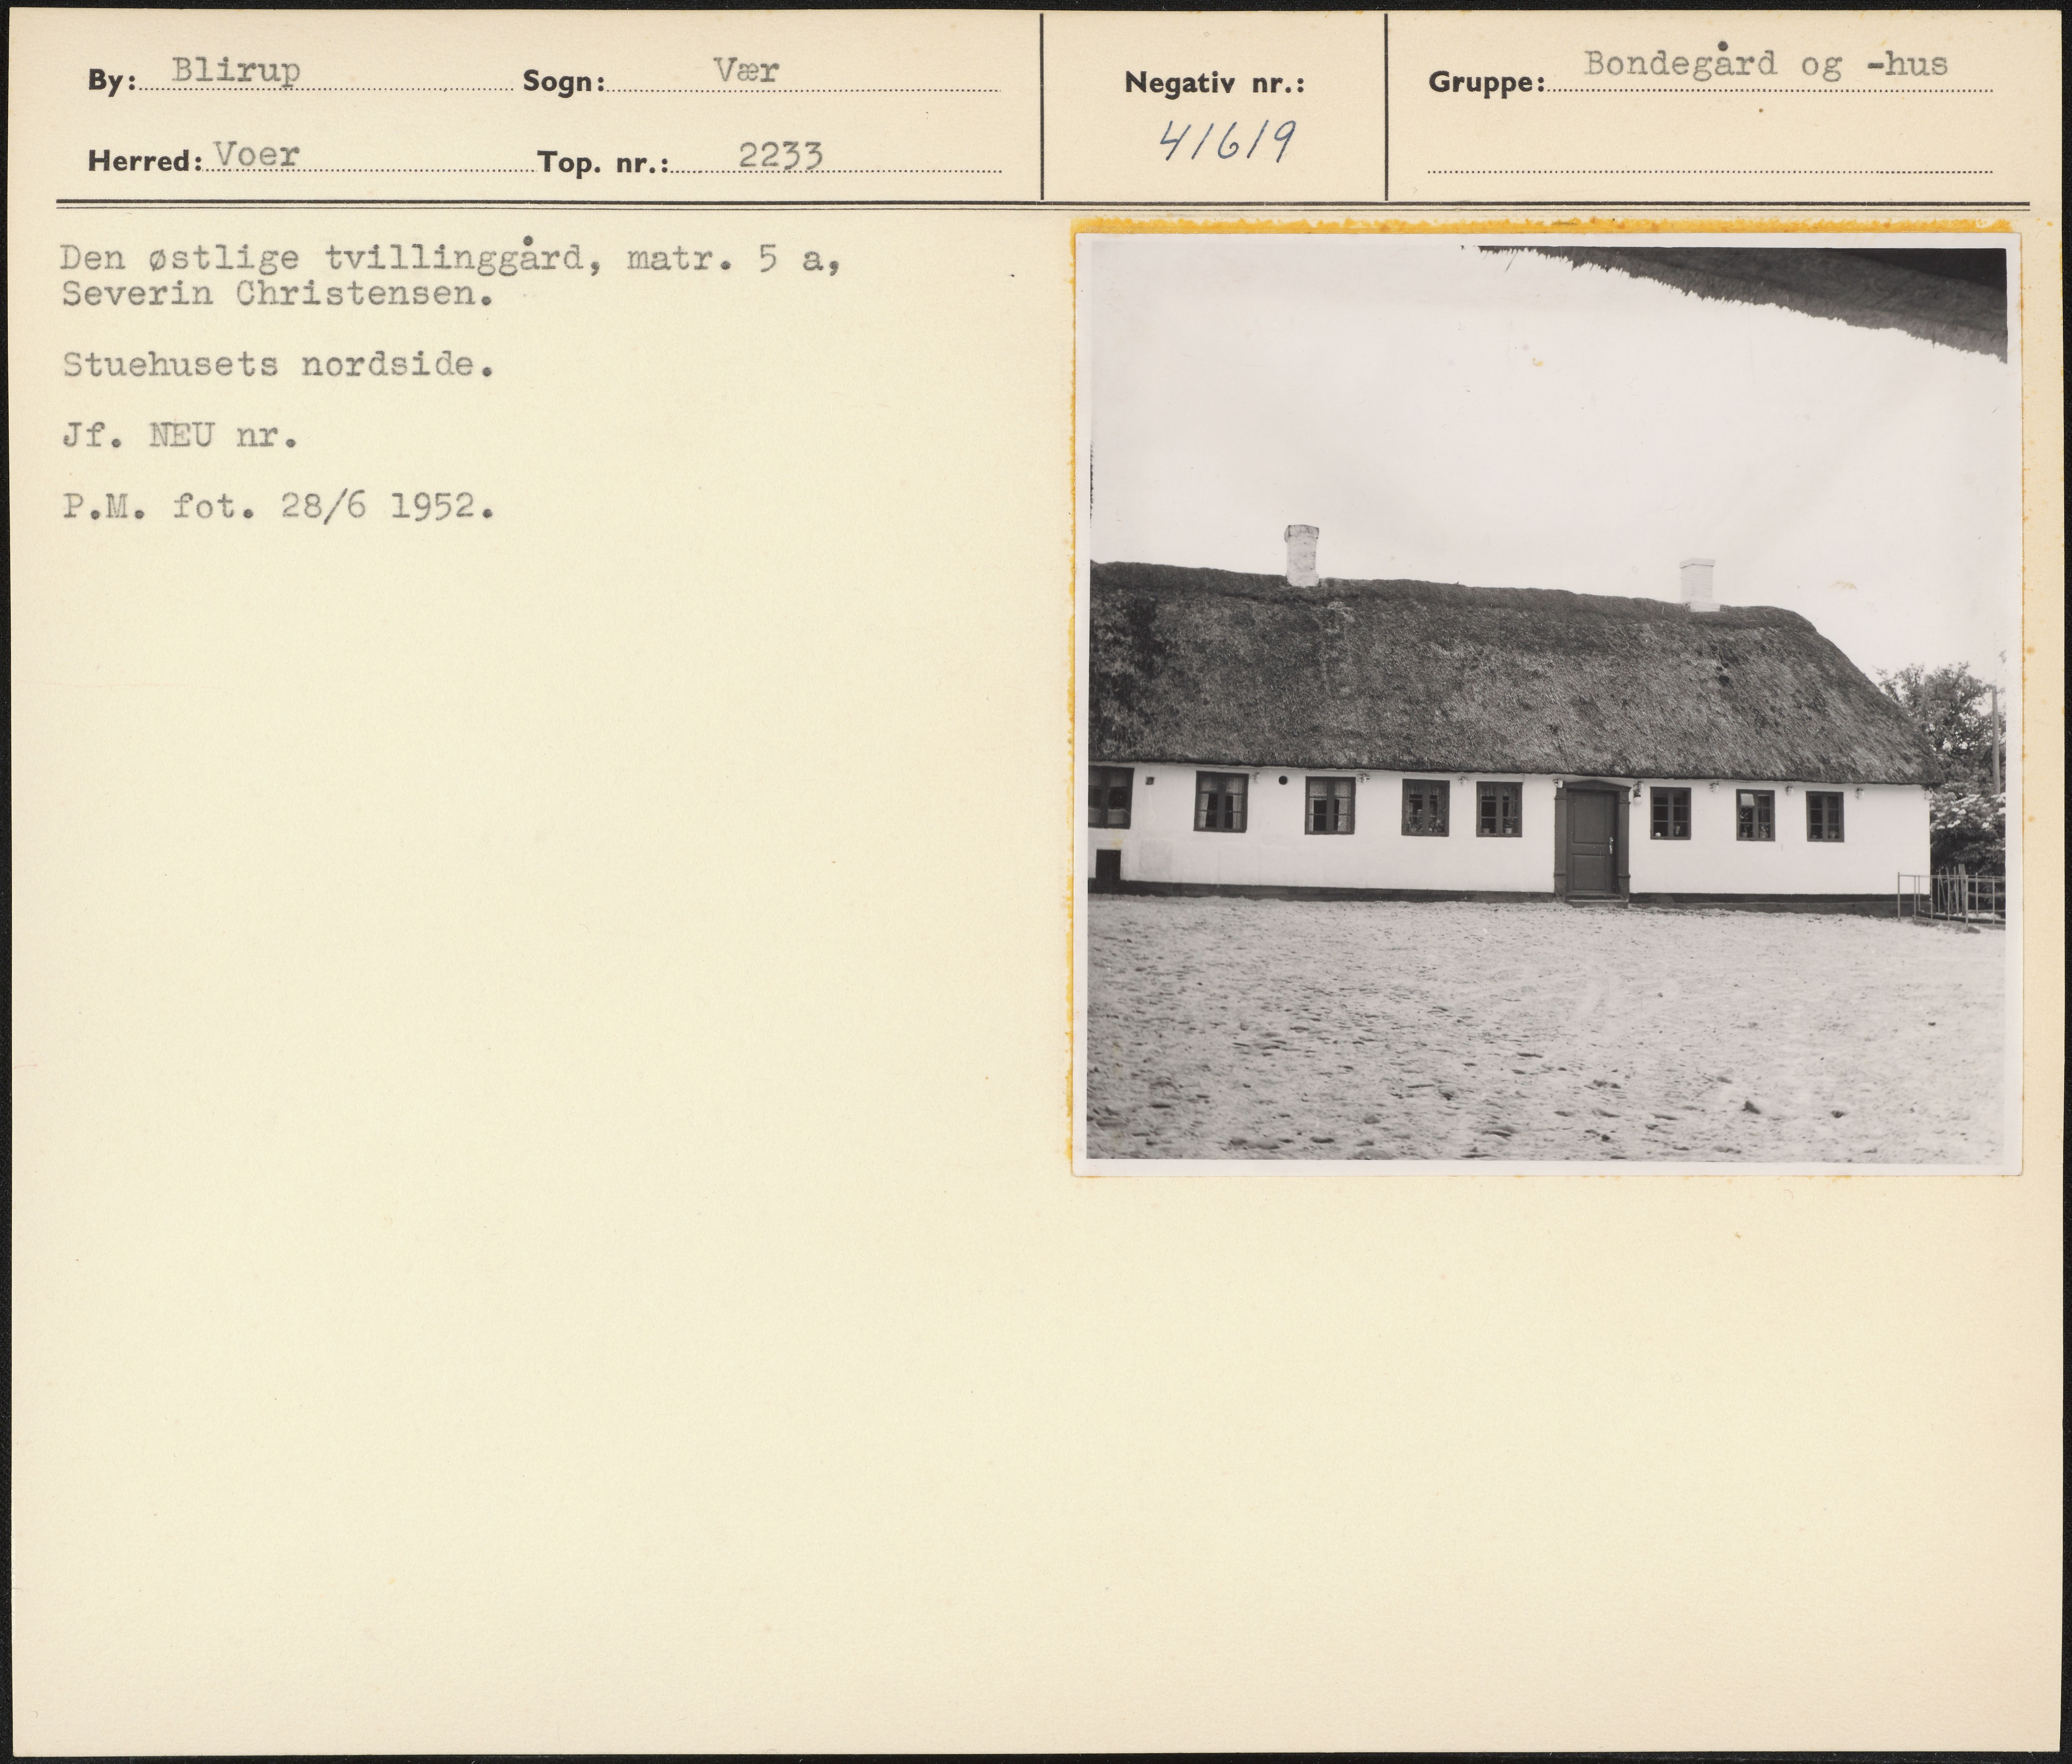 By: Blirup Sogn: Vær
Herred: Voer Top. nr.: 2233
Negativ nr.:
41619
Gruppe: Bondegård og -hus
Den østlige tvillinggård, matr. 5 a,
Severin Christensen.
Stuehusets nordside.
Jf. NEU nr.
P.M. fot. 28/6 1952.